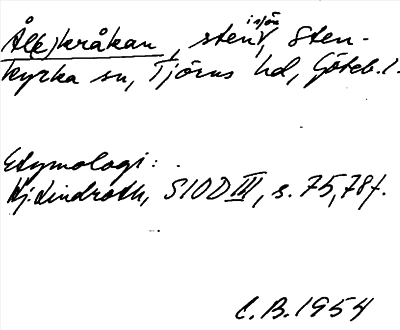 Ål(e)kråkan, sten i sjön, Sten-
kyrka sn, Tjörns hd, Göteb. l.
Etymologi:
Hj. Lindroth, SIOD III, s. 75, 78 f.
C. B. 1954